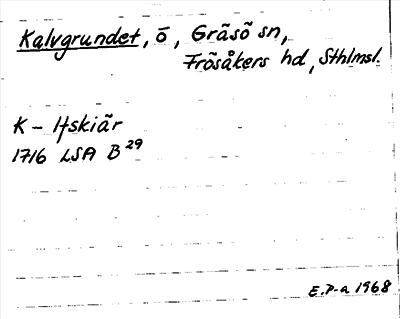 Kalvgrundet, ö, Gräsö sn,
Frösåkers hd, Sthlmsl.
K - lfskiär
1716 LSA B 29
E.P-a 1968